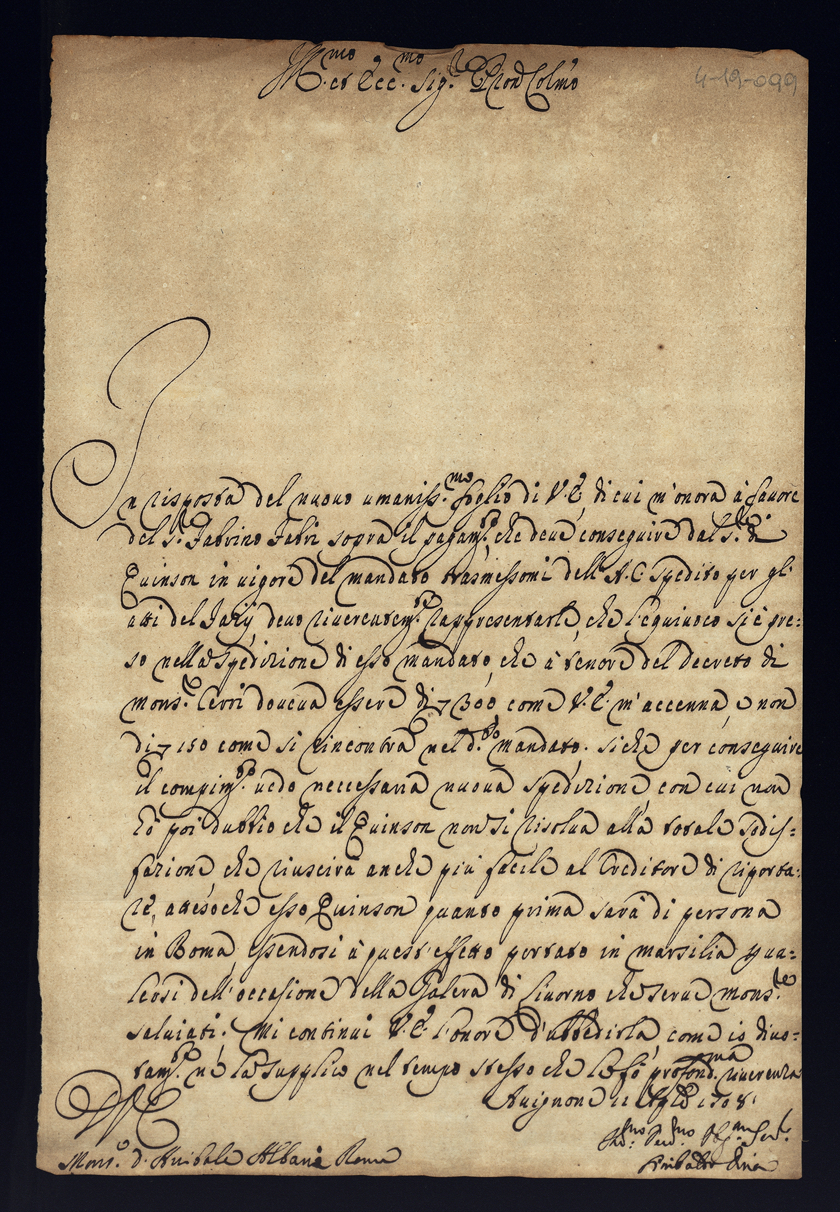 Ill.mo et Ecc.mo Sig.re P̃ron Colmo
4-12-099
In risposta del nuouo umaniss.mo foglio di V.E. di cui m'onora à fauore
del S.r Fabrizio Fabri sopra il pagam.to, che deue conseguire dal S.r di
Quinson in uigore del mandato trasmessomi dell'A.C. spedito per gl'
atti del deuo riuerentem.te rappresentarle, che l'equiuoco si è pre=
so nella spedizione di esso mandato, che à tenore del decreto di
mons.re Cerri doueua essere di 300 come V.E. m'accenna, e non
di 150 come si rincontra nel d.o mandato. siche per conseguire
il compim.to uedo neccessaria nuoua spedizione, con cui non
hò poi dubbio che il Quinson non si risolua alla totale sodis=
fazione, che riuscirà anche più facile al Creditore di riporta=
re, atteso che esso Quinson quanto prima sarà di persona
in Roma, essendosi à quest'effetto portato in marsilia per ua=
lersi dell'occasione della Galera di Liuorno che serue mons.re
saluiati. Mi continui V.E. l'onore d'ubbedirla, come io diuo=
tam.te ne la supplico nel tempo stesso che le fò profond.ma riuerenza
Auignone 11 Aglo 1708.
Mons.re d. Anibale Albani Roma
Diu.mo Seru.mo Obl.mo Ser.re